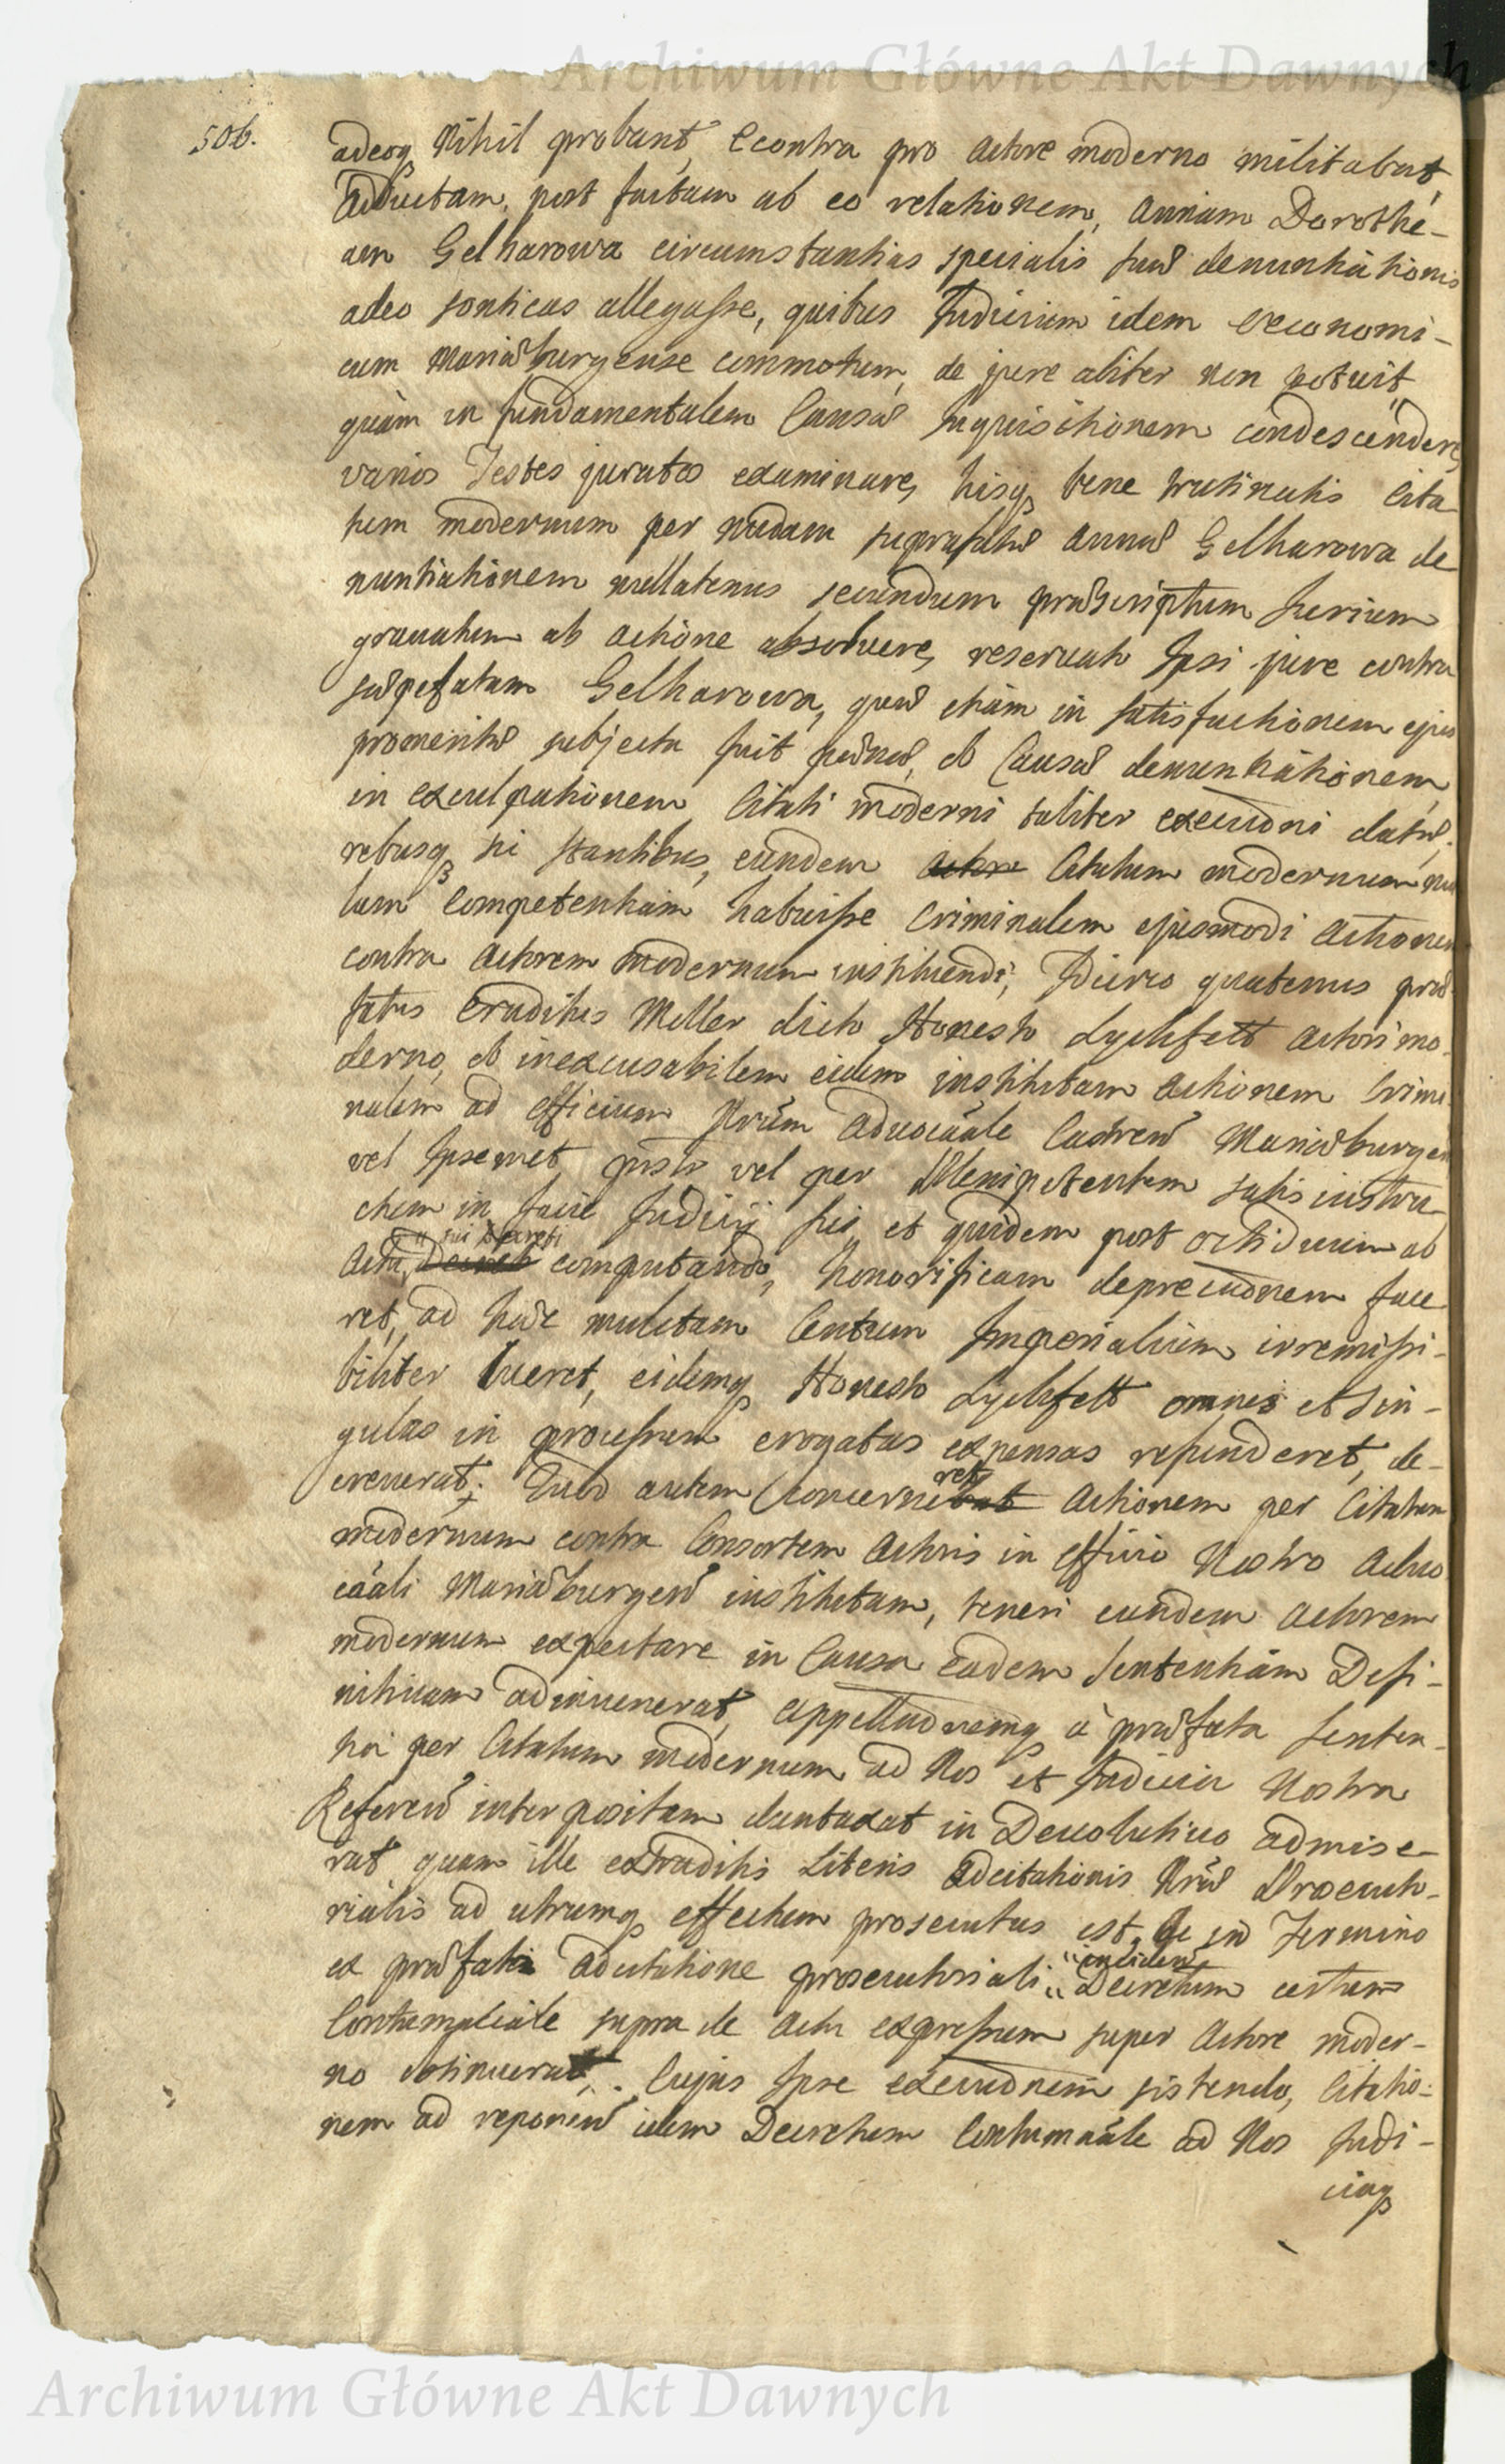 Archiwum Główne Akt Dawnych
506.
adeoq̃ Nihil probant, econtra pro Actore moderno militabat,
Adductam, post factam ab eo relationem, Annam Dorothe-
am Gelharowa circumstantias specialis suæ denuntiationis
adeo sonticas allegasse, quibus Judicium idem Oeconomi-
cum Mariæburgense commotum, de jure aliter non potuit,
quàm in fundamentalem Causæ Inquisitionem condescendere,
varios Testes juratos examinare, hisq̃ bene trutinatis Cita
tum modernum per nudam suprafatæ Annæ Gelharowa de
nuntiationem nullatenus secundum præscriptum Jurium
grauatum ab actione absoluere, reseruato Ipsi jure contra
sæpefatam Gelharowa, quæ etiam in satisfactionem ejus
promeritæ subjecta fuit pœnæ, ob Causæ denuntiationem,
in exculpationem Citati moderni taliter execuõni datæ,
rebusq̃ sic stantibus, eundem Actore Citatum modernum nul
lam Competentiam habuisse Criminalem ejusmodi Actionem
contra Actorem modernum instituendi, Idcirco quatenus præ
fatus Eruditus Miller dicto Honesto Lychfett Actori mo-
derno, ob inexcusabilem eidem institutam Actionem Crimi
nalem ad officium Nrũm Aduocãale Castren̄ Mariæburgen̄
vel Ipsemet, vel per Plenipotentem satis instru
ctum in facie Judicij sui, et quidem post octiduum ab
Actu sui Decreti Decreti computando, honorificam deprecãonem face
ret, ad hæc mulctam Centum Imperialium irremissi-
biliter lueret, eidemq̃ Honesto Lychfett omnes et sin-
gulas in processum erogatas expensas refunderet, de-
creuerat; Quod autem concernebat ret Actionem per Citatum
modernum contra Consortem Actoris in officio Nostro Aduo
cãali Mariæburgen̄ institutam, teneri eundem Actorem
modernum expectare in Causa eadem Sententiam Defi-
nitiuam adinuenerat, Appellãonemq̃ à præfata Senten-
tia per Citatum modernum ad Nos et Judicia Nostra
Referen̄ interpositam duntaxat in Deuolutiuo admise-
rat, quam ille extraditis Literis Adcitationis Nr̃æ Prosecuto-
rialis ad utrumq̃ effectum prosecutus est, Ac in Termino
ex præfata Adcitatione prosecutoriali inciden̄ Decretum certum
Contumaciale supra de Actu expressum super Actore moder-
no obtinuerat. Cujus Ipse execuõnem sistendo, Citatio-
nem ad reponen̄ idem Decretum Contumacãle ad Nos Judi-
ciaq̃
Archiwum Główne Akt Dawnych